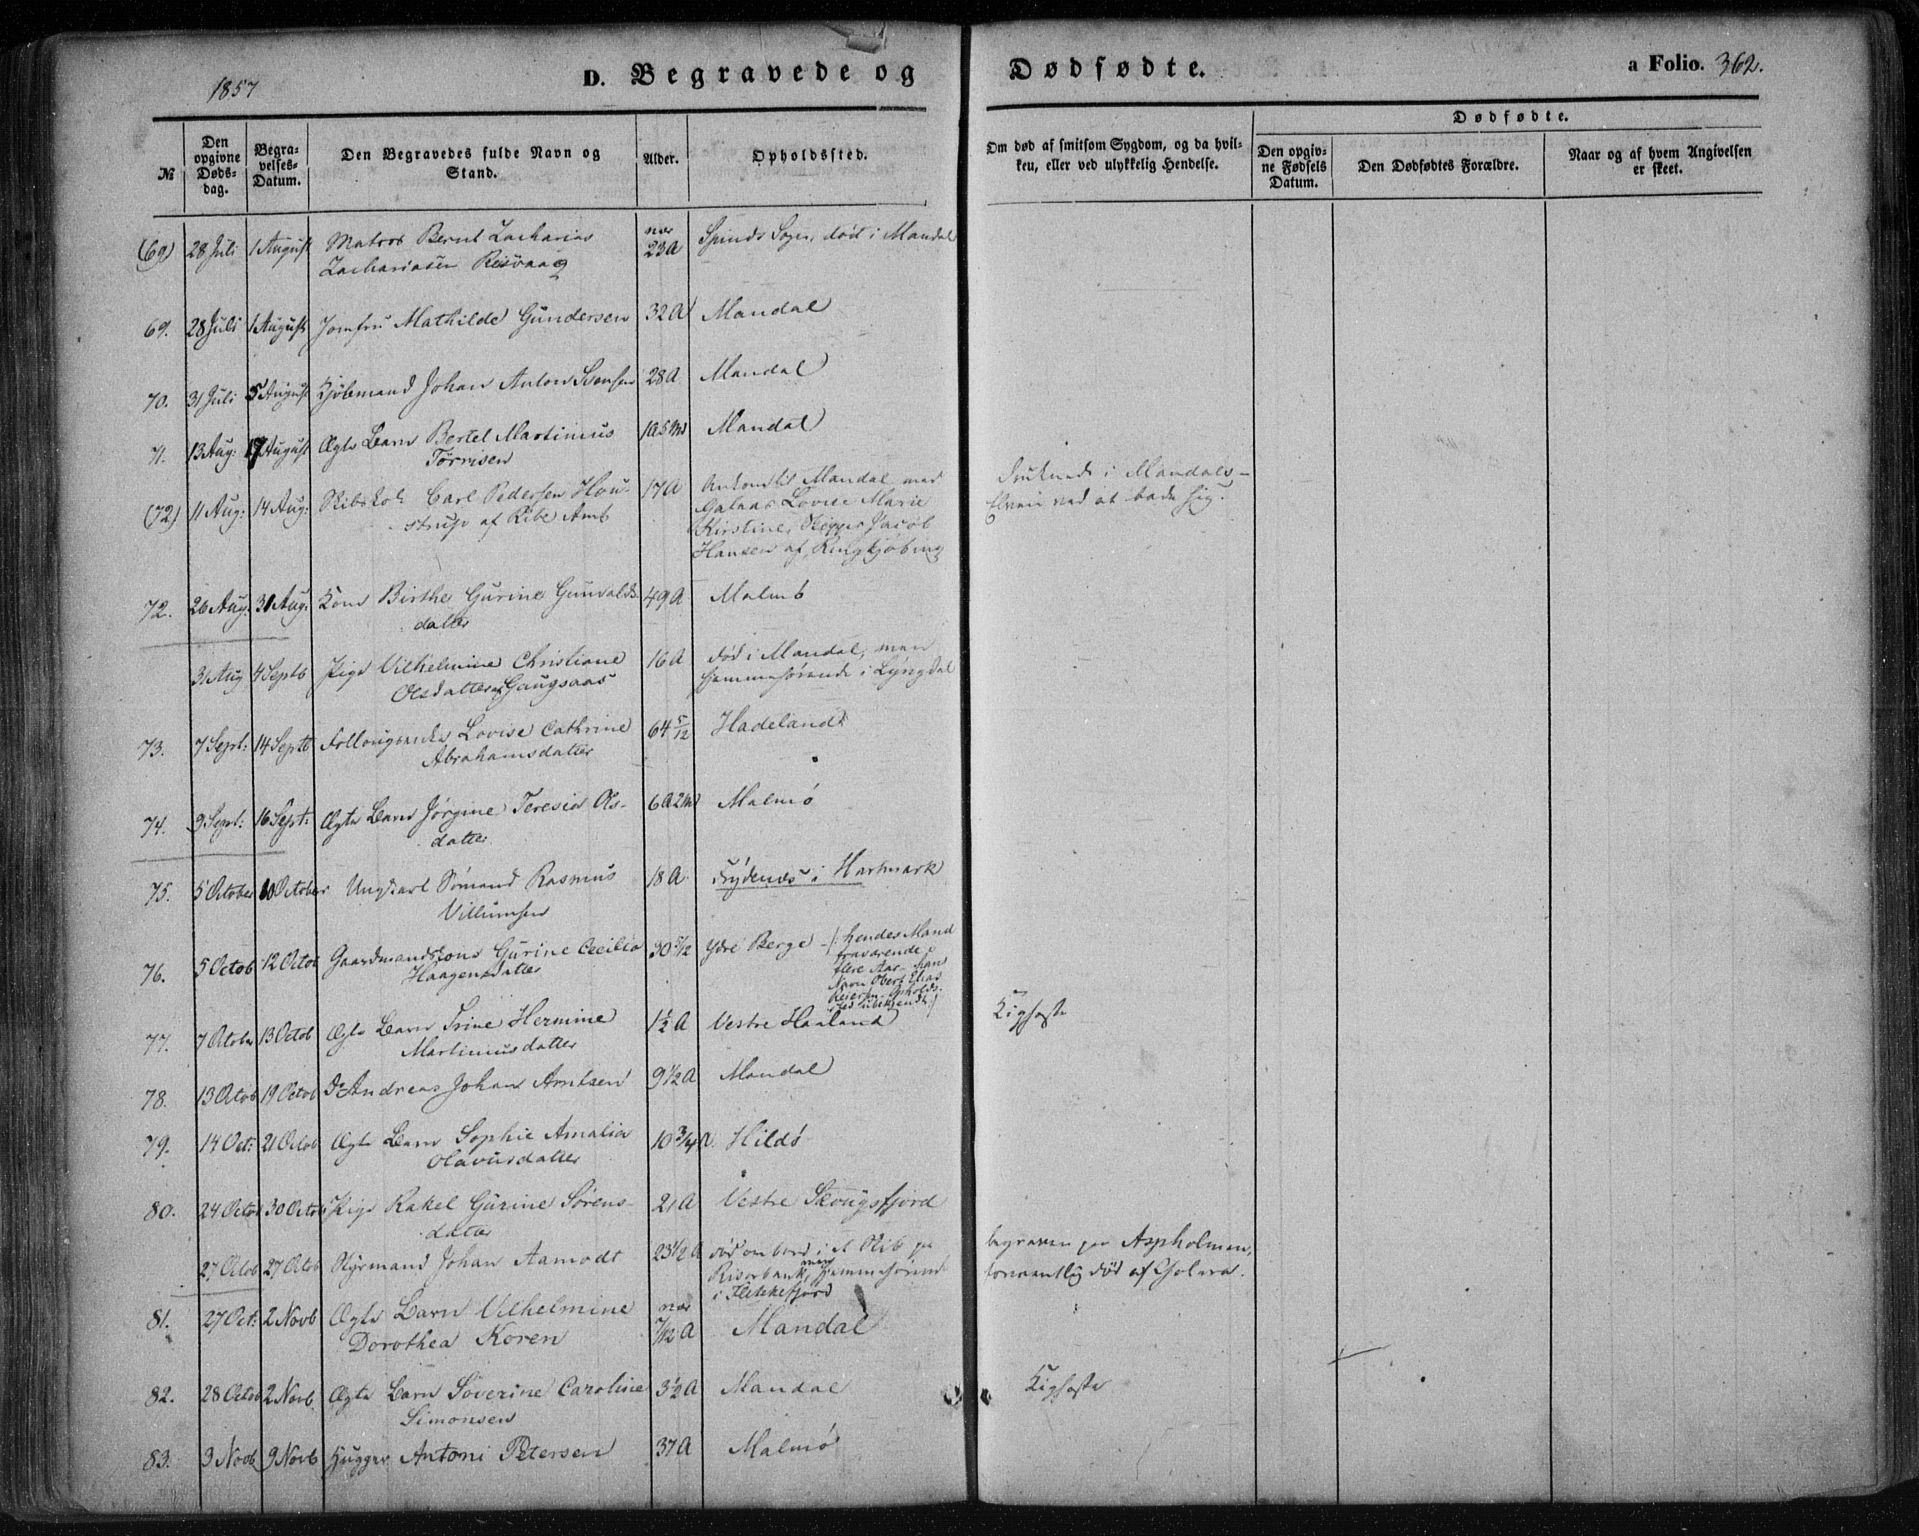 1857
D. Begravede og
Dødfødte.
a Folio. 362.
№
Den opgivne Dødsdag.
Begravelses-Datum.
Den Begravedes fulde Navn og Stand.
Alder.
Opholdssted.
Om død af smitsom Sygdom, og da hvilken, eller ved ulykkelig Hendelse.
Dødfødte.
Den opgivne Fødsels Datum.
Den Dødfødtes Forældre.
Naar og af hvem Angivelsen er skeet.
(69) 28 Juli 1 August Matros Bernt Zacharias nær 23 A Spinds Sogn, død i Mandal
Zachariasen Risvaag
69. 28 Juli 1 August Jomfru Mathilde Gundersen 32 A Mandal
70. 31 Juli 5 August Kjøbmand Johan Anton 28 A Mandal
71. 13 Aug: 17 August Ægte Barn Bertel Martinius 1 A 5 M Mandal
Tørrisen
(72) 11 Aug: 14 Aug: Skibskok Carl Pedersen Hou- 17 A Mandal med
strup af Ribe Amt
Galeas Lovise Marie
Kirstine, Skipper Jacob
Hansen af Ringkjøbing
Druknede i Mandals-
Elven ved at bade sig.
72. 26 Aug: 31 Aug: Kone Birthe Gurine Gunvalds- 49 A Malmø
datter
31 Aug 4 Septb Pige Vilhelmine Christiane 16 A død i Mandal, men
Olsdatter Haugsaas hjemmehørende i Lyngdal
73. 7 Sept: 14 Septb Lovise Cathrine 64 5/12 Hadeland
Abrahamsdatter
74. 9 Sept: 16 Sept: Ægte Barn Jørgine Teresia Ols- 6 A 2 M Malmø
datter
75. 5 October 10 October Ungkarl Sømand Rasmus 18 A Frydenæs i Hartmark
Villumsen
76. 5 Octob 12 Octob Gaardmandskone Gurine Cecilia 30 5/12 Ydre Berge /: hendes Mand
Haagensdatter
fraværende i
flere Aar
Navn
Opholds-
sted ubekjendt :/
77. 7 October 13 Octob Ægte Barn Trine Hermine 1 1/2 A Vestre Haaland Kighoste
Martiniusdatter
78. 13 Octob 19 Octob Do Andreas Johan Arntsen 9 1/2 A Mandal
79. 14 Oct: 21 Octob Ægte Barn Sophie Amalia 10 3/4 A Hildø
Olavusdatter
80. 24 Octob 30 Octob Pige Rakel Gurine Sørens- 21 A Vestre Skougsfjord
datter
27 Octob 27 Octob Styrmand Johan Aamodt 23 1/2 A død ombord i et Skib paa
Risørbank, men hjemmehørende
i Flekkefjord
begraven paa Aspholmen,
formentlig død af Cholera.
81. 27 Oct: 2 Novb Ægte Barn Vilhelmine nær 7/12 A Mandal
Dorothea Koren
82. 28 Octob 2 Novb. Ægte Barn Severine Caroline 3 1/2 A Mandal Kighoste
Simonsen
83. 3 Novb 9 Novb Hugger Antoni Petersen 37 A Malmø